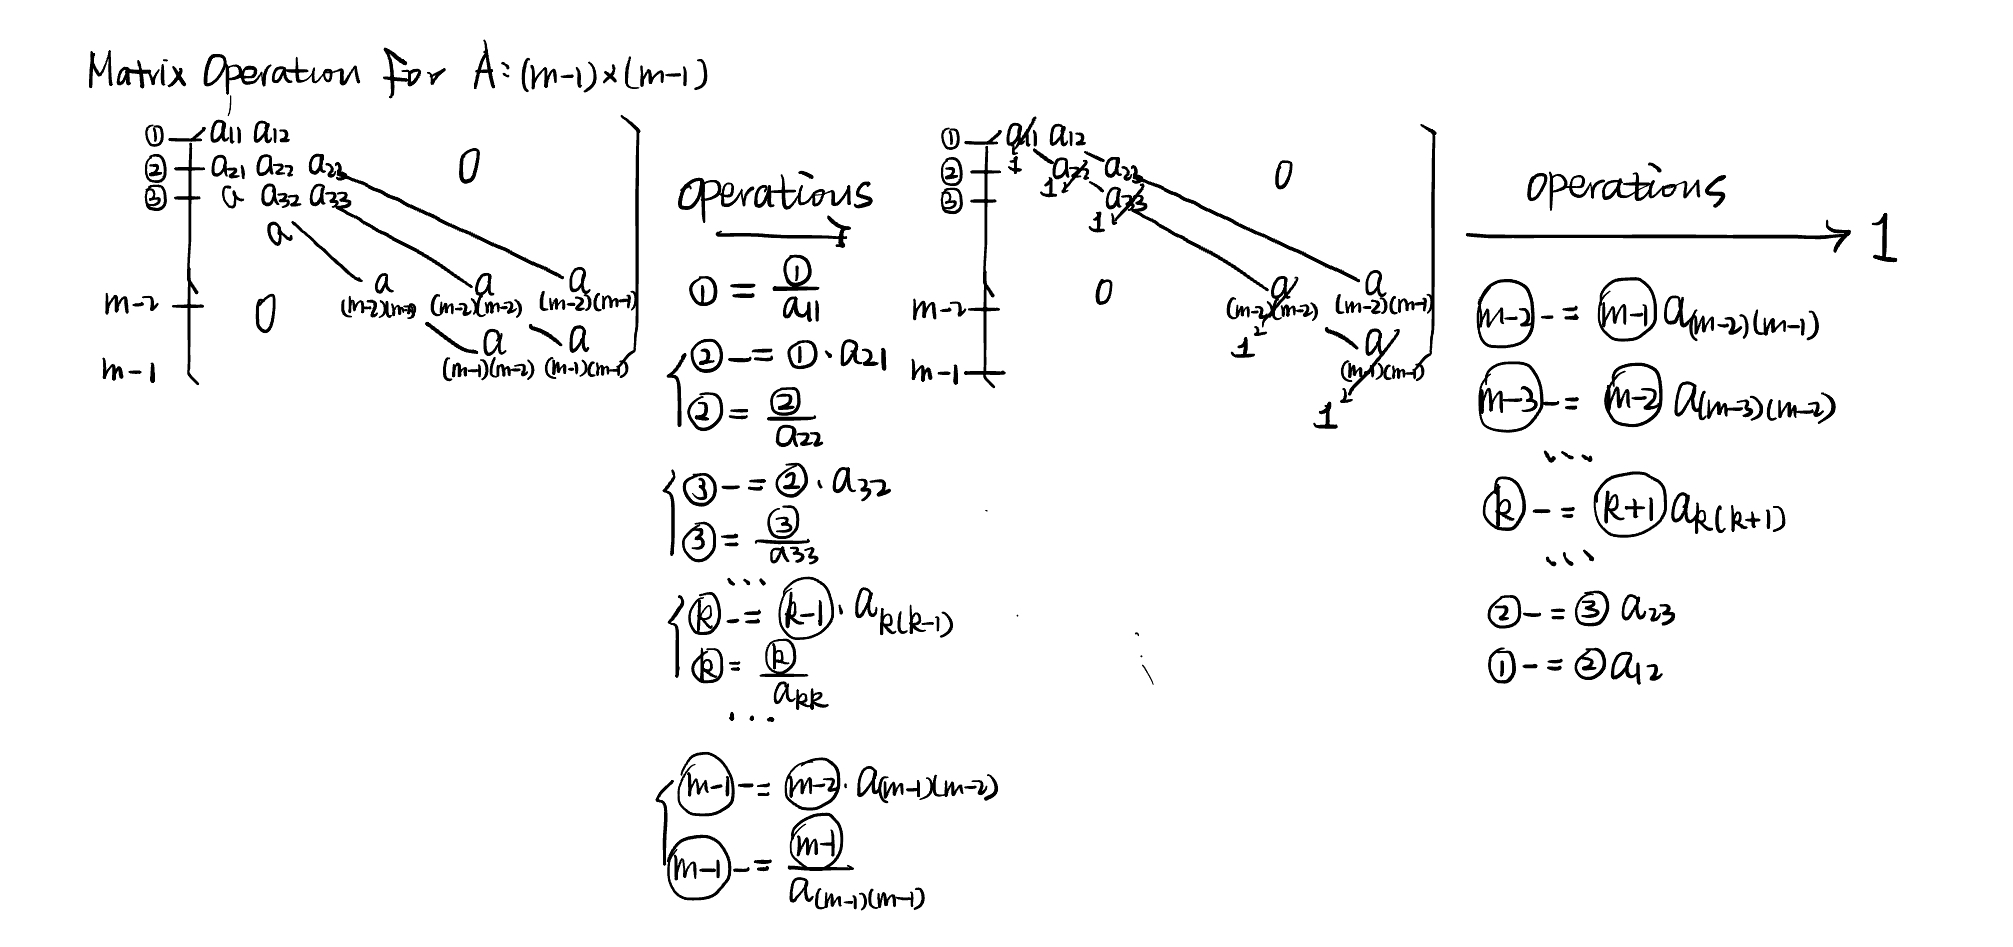 Matrix Operation For A:(m-1)×(m-1)
① a11 a12
② a21 a22 a23 0
③ a a32 a33
a
a a a
m-2 0 (m-2)(m-3) (m-2)(m-2) (m-2)(m-1)
a a
m-1 (m-1)(m-2) (m-1)(m-1)
operations
① = ①/a11
② -= ①·a21
② = ②/a22
③ -= ②·a32
③ = ③/a33
...
ⓚ -= (k-1)·ak(k-1)
ⓚ = ⓚ/akk
...
(m-1) -= (m-2)·a(m-1)(m-2)
(m-1) -= (m-1)/a(m-1)(m-1)
① a11 a12
1
② a22 a23 0
1
③ a33
1
0 a a
m-2 (m-2)(m-2) (m-2)(m-1)
1 a
m-1 (m-1)(m-1)
1
operations
1
(m-2) -= (m-1) a(m-2)(m-1)
(m-3) -= (m-2) a(m-3)(m-2)
...
ⓚ -= (k+1) ak(k+1)
...
② -= ③ a23
① -= ② a12